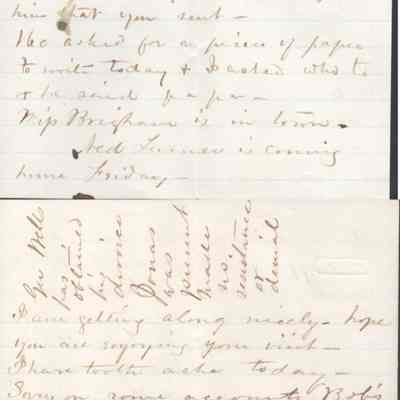 him that you sent -
He asked for a piece of paper
to write today & I asked who to
& he said papa -
Nip Brigham is in town -
Ned Turner is coming
home Friday -
Geo Wells
has
obtained
his
divorce
Jonas
was
present
made
no
resistance
or
denial
I am getting along nicely - hope
you are enjoying your visit -
I have tooth ache today -
Sorry on some accounts Bob's